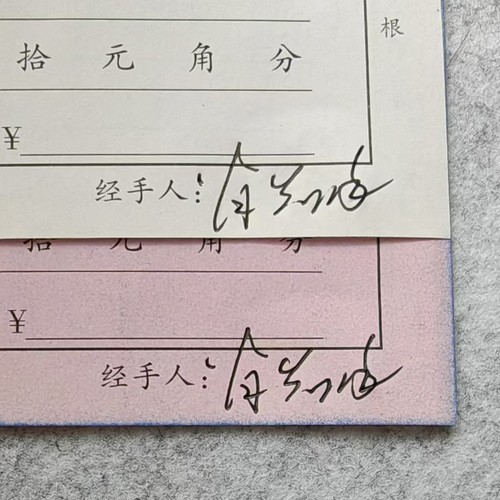 根
拾 元 角 分
¥
经手人：
拾 元 角 分
¥
经手人：